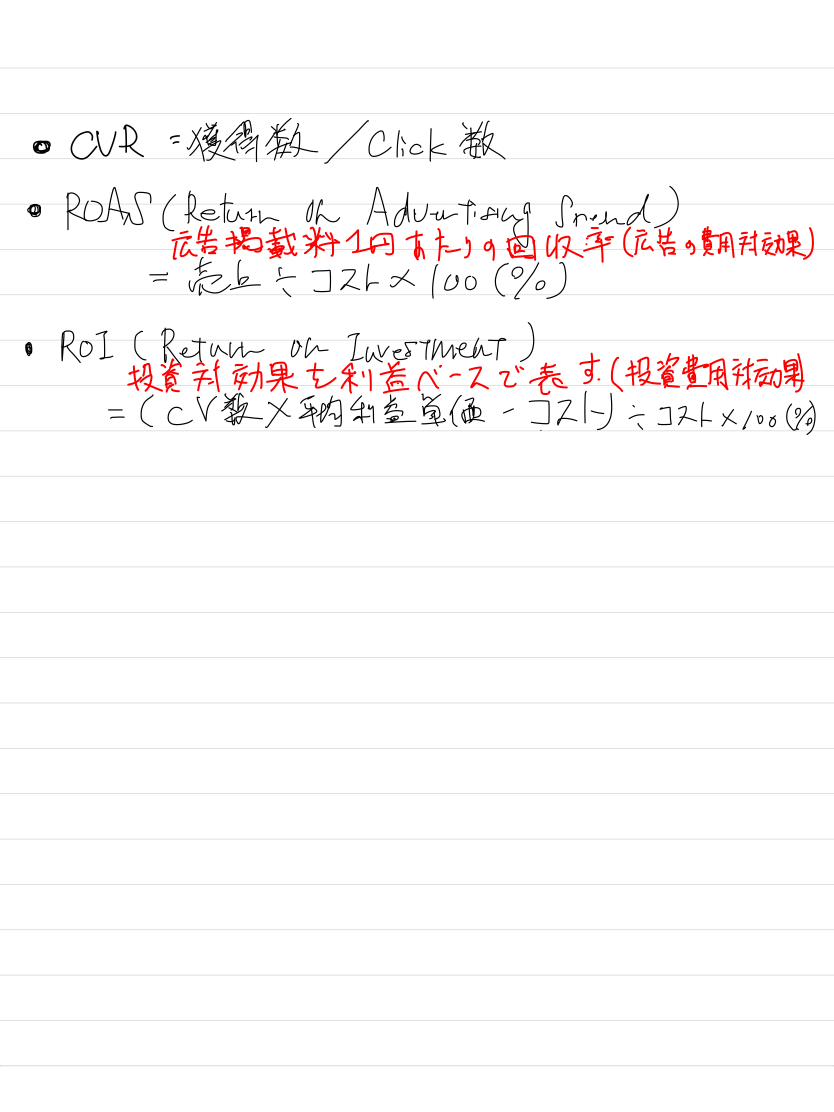 • CVR = 獲得数 / Click 数
• ROAS (Return on Advertising Spend)
広告掲載料1円あたりの回収率(広告の費用対効果)
= 売上 ÷ コスト × 100 (%)
• ROI (Return on Investment)
投資対効果を利益ベースで表す.(投資費用対効果
= (CV数×平均利益単価 - コスト) ÷ コスト×100(%)